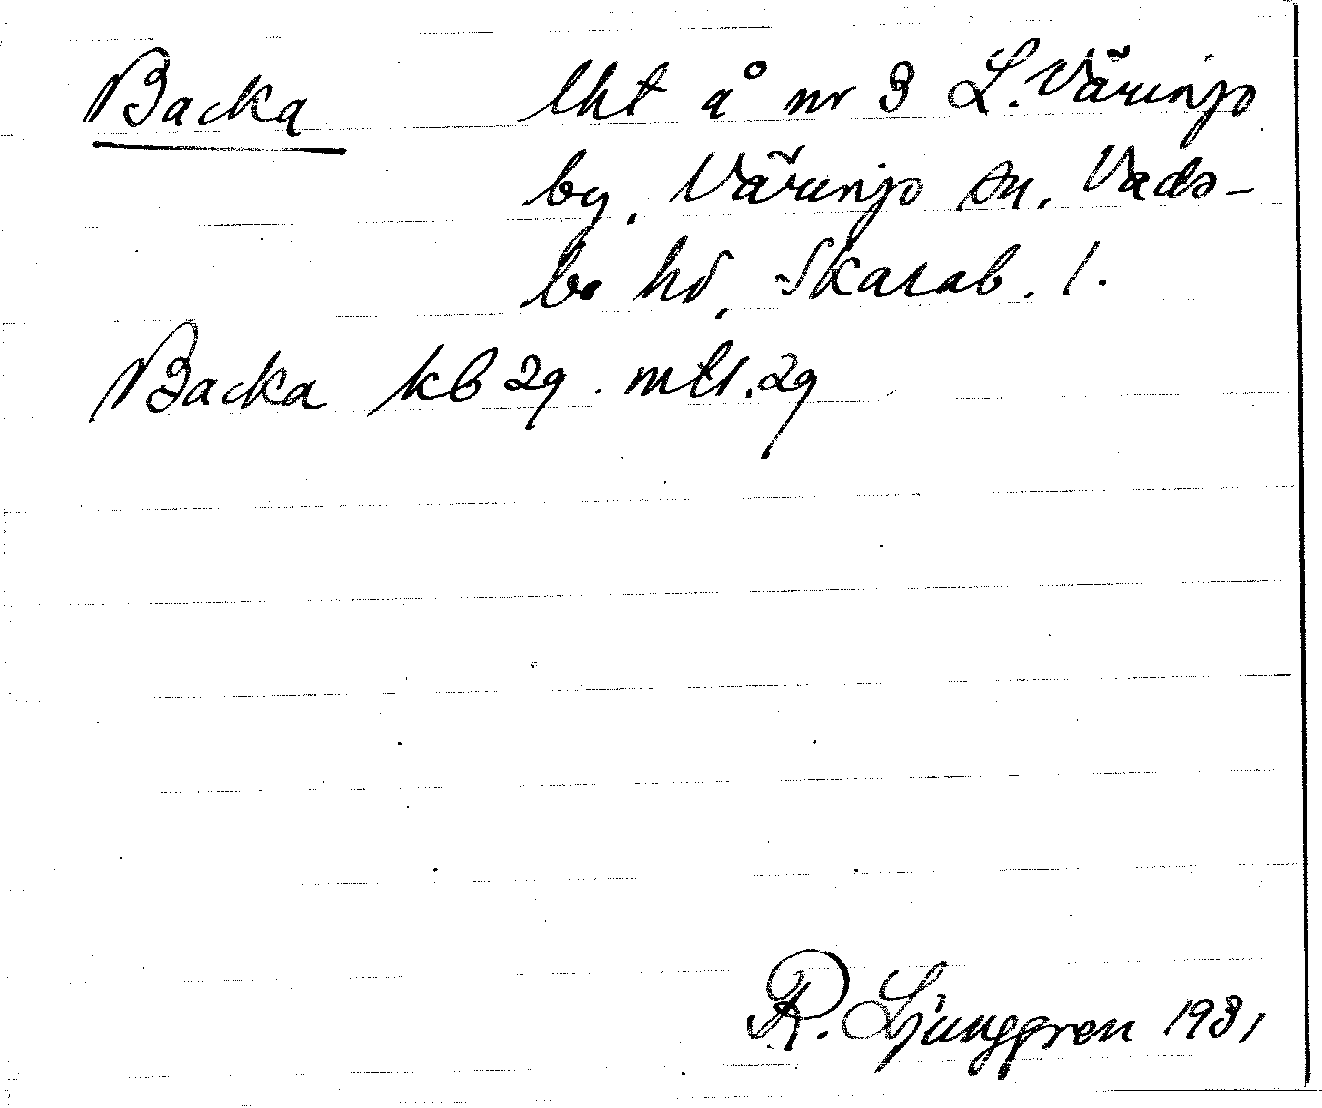 Backa lht å nr 3 L. Väringo
by, Väringo sn, Vads-
bo hd, Skarab. l.
Backa kb 29. mtl. 29
R. Ljunggren 1931